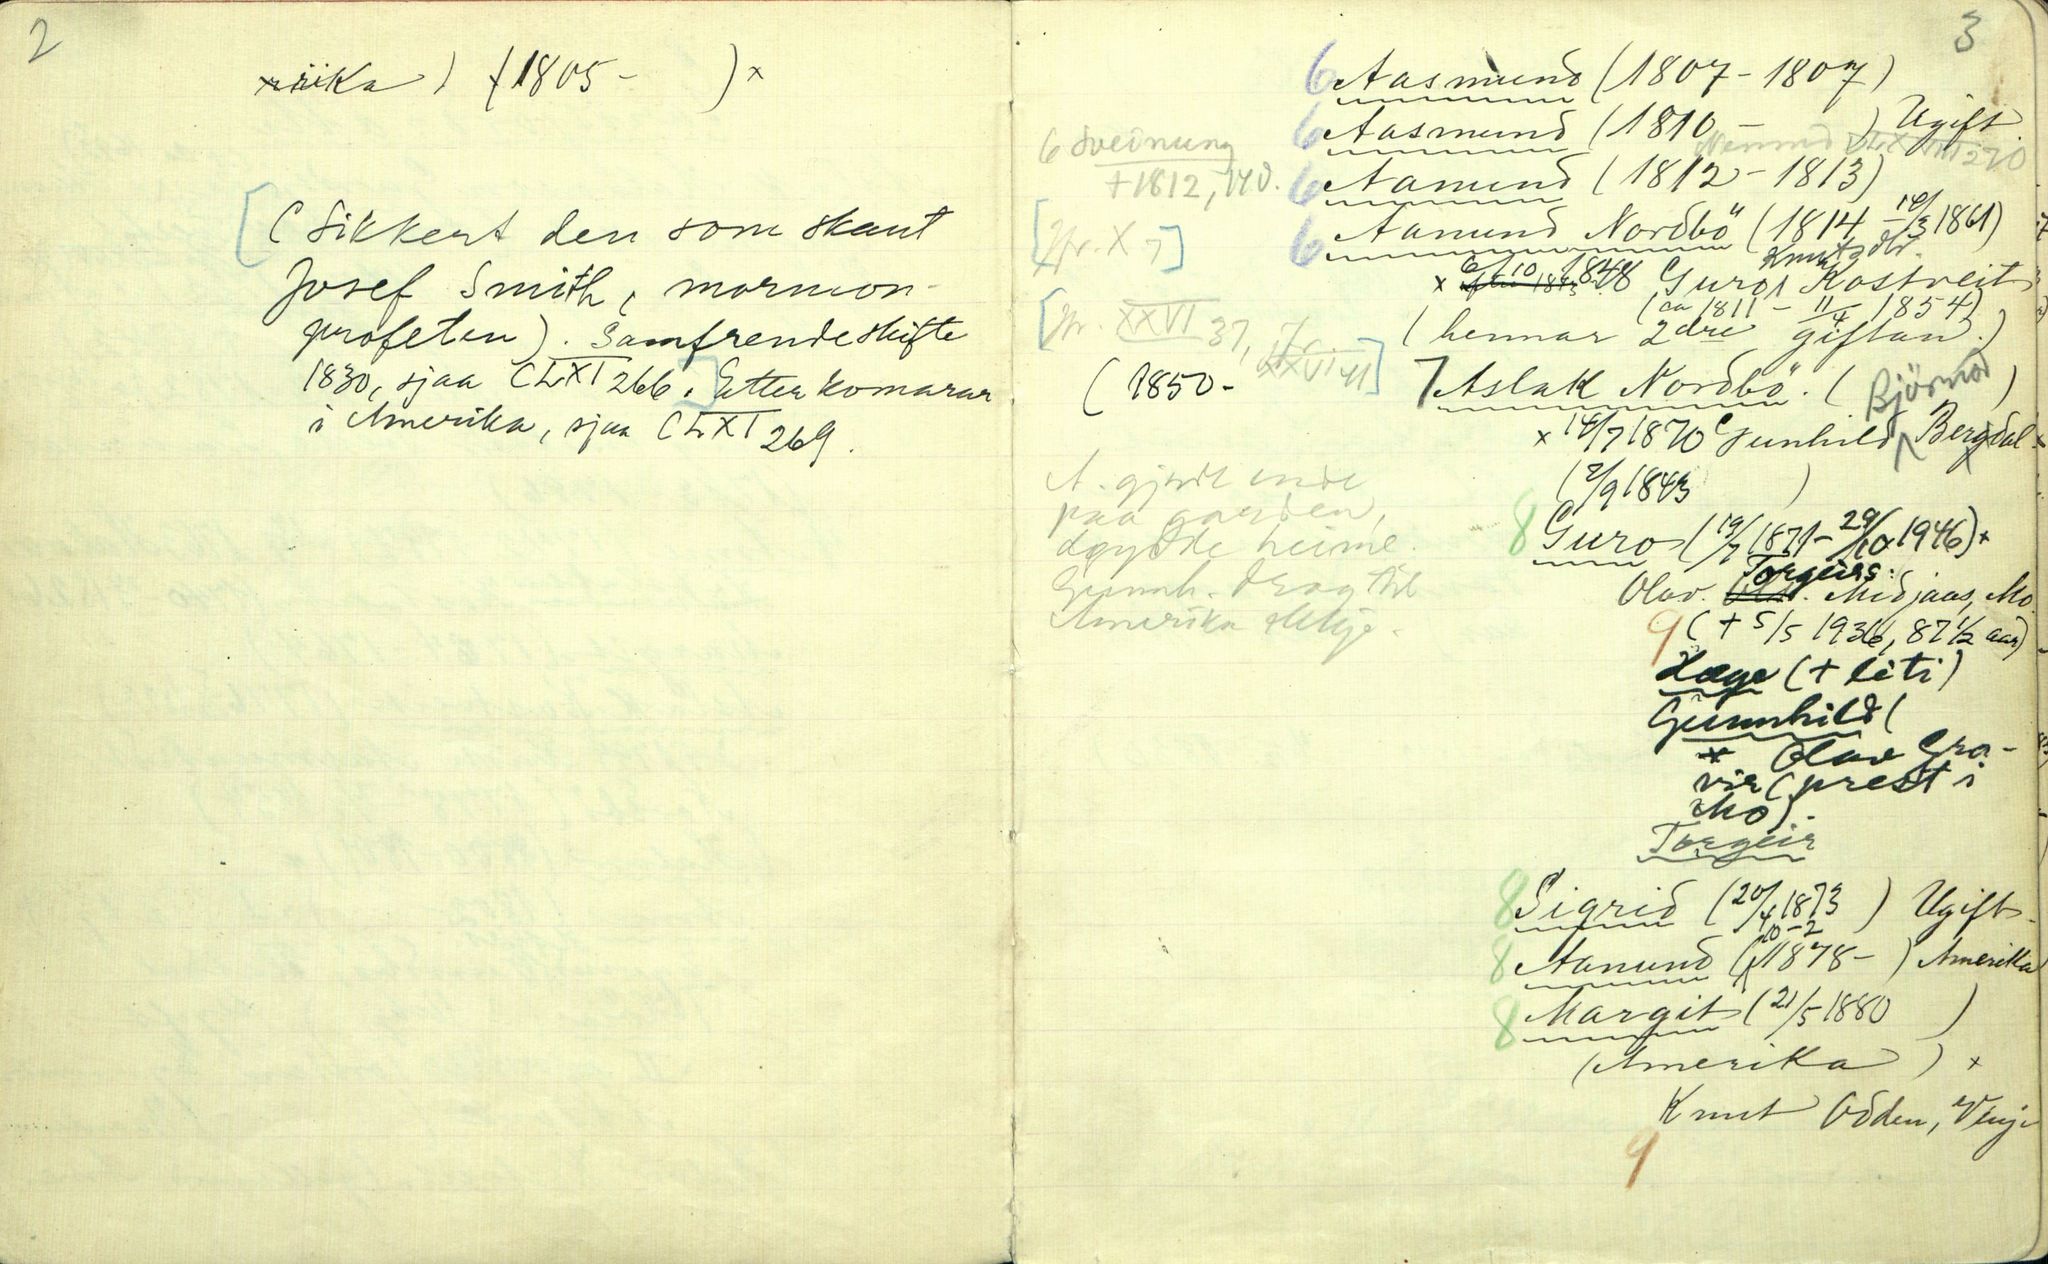 2
rika) (1805- )x
(Sikkert den som skaut
Josef Smith, mormon-
profeten). Samfrendeskifte
1830, sjaa CLXI 266. Etterkomarar
i Amerika, sjaa CLXI 269.
3
6 Aasmund (1807-1807)
6 Aasmund (1810- ) Ugift.
Nemnd 270
6 Sveinung
+1812, 14 d.
6 Aamund (1812-1813)
[Jfr. X 7]
6 Aamund Nordbö (1814, 14/3 1861)
x 6/10 1848 Guro Knutsdtr. Kostveit
(ca 1811 - 11/4 1854)
(hennar 2dre giftan.)
[Jfr. XXVI 37, Jfr. XXVI 41]
(1850-
7 Aslak Nordbö. ( )
x 14/7 1870 Gunhild Björnsd Bergdal
(2/9 1843 )
A. gjorde ende
paa garden,
döydde heime.
Gunnh. drog til
Amerika
8 Guro (19/7 1871-29/10 1946)x
Olav Torgeirs. Midjaas, Mo.
9 (+ 5/5 1936, 87½ aar)
Hæge (+ liti)
Gunnhild (
x Olav Gra-
vir (prest i
Mo).
Torgeir
8 Sigrid (20/4 1873 ) Ugift.
8 Aamund (10-2 1878- ) Amerika
8 Margit (21/5 1880 )
(Amerika) x
Knut Odden, Vinje
9